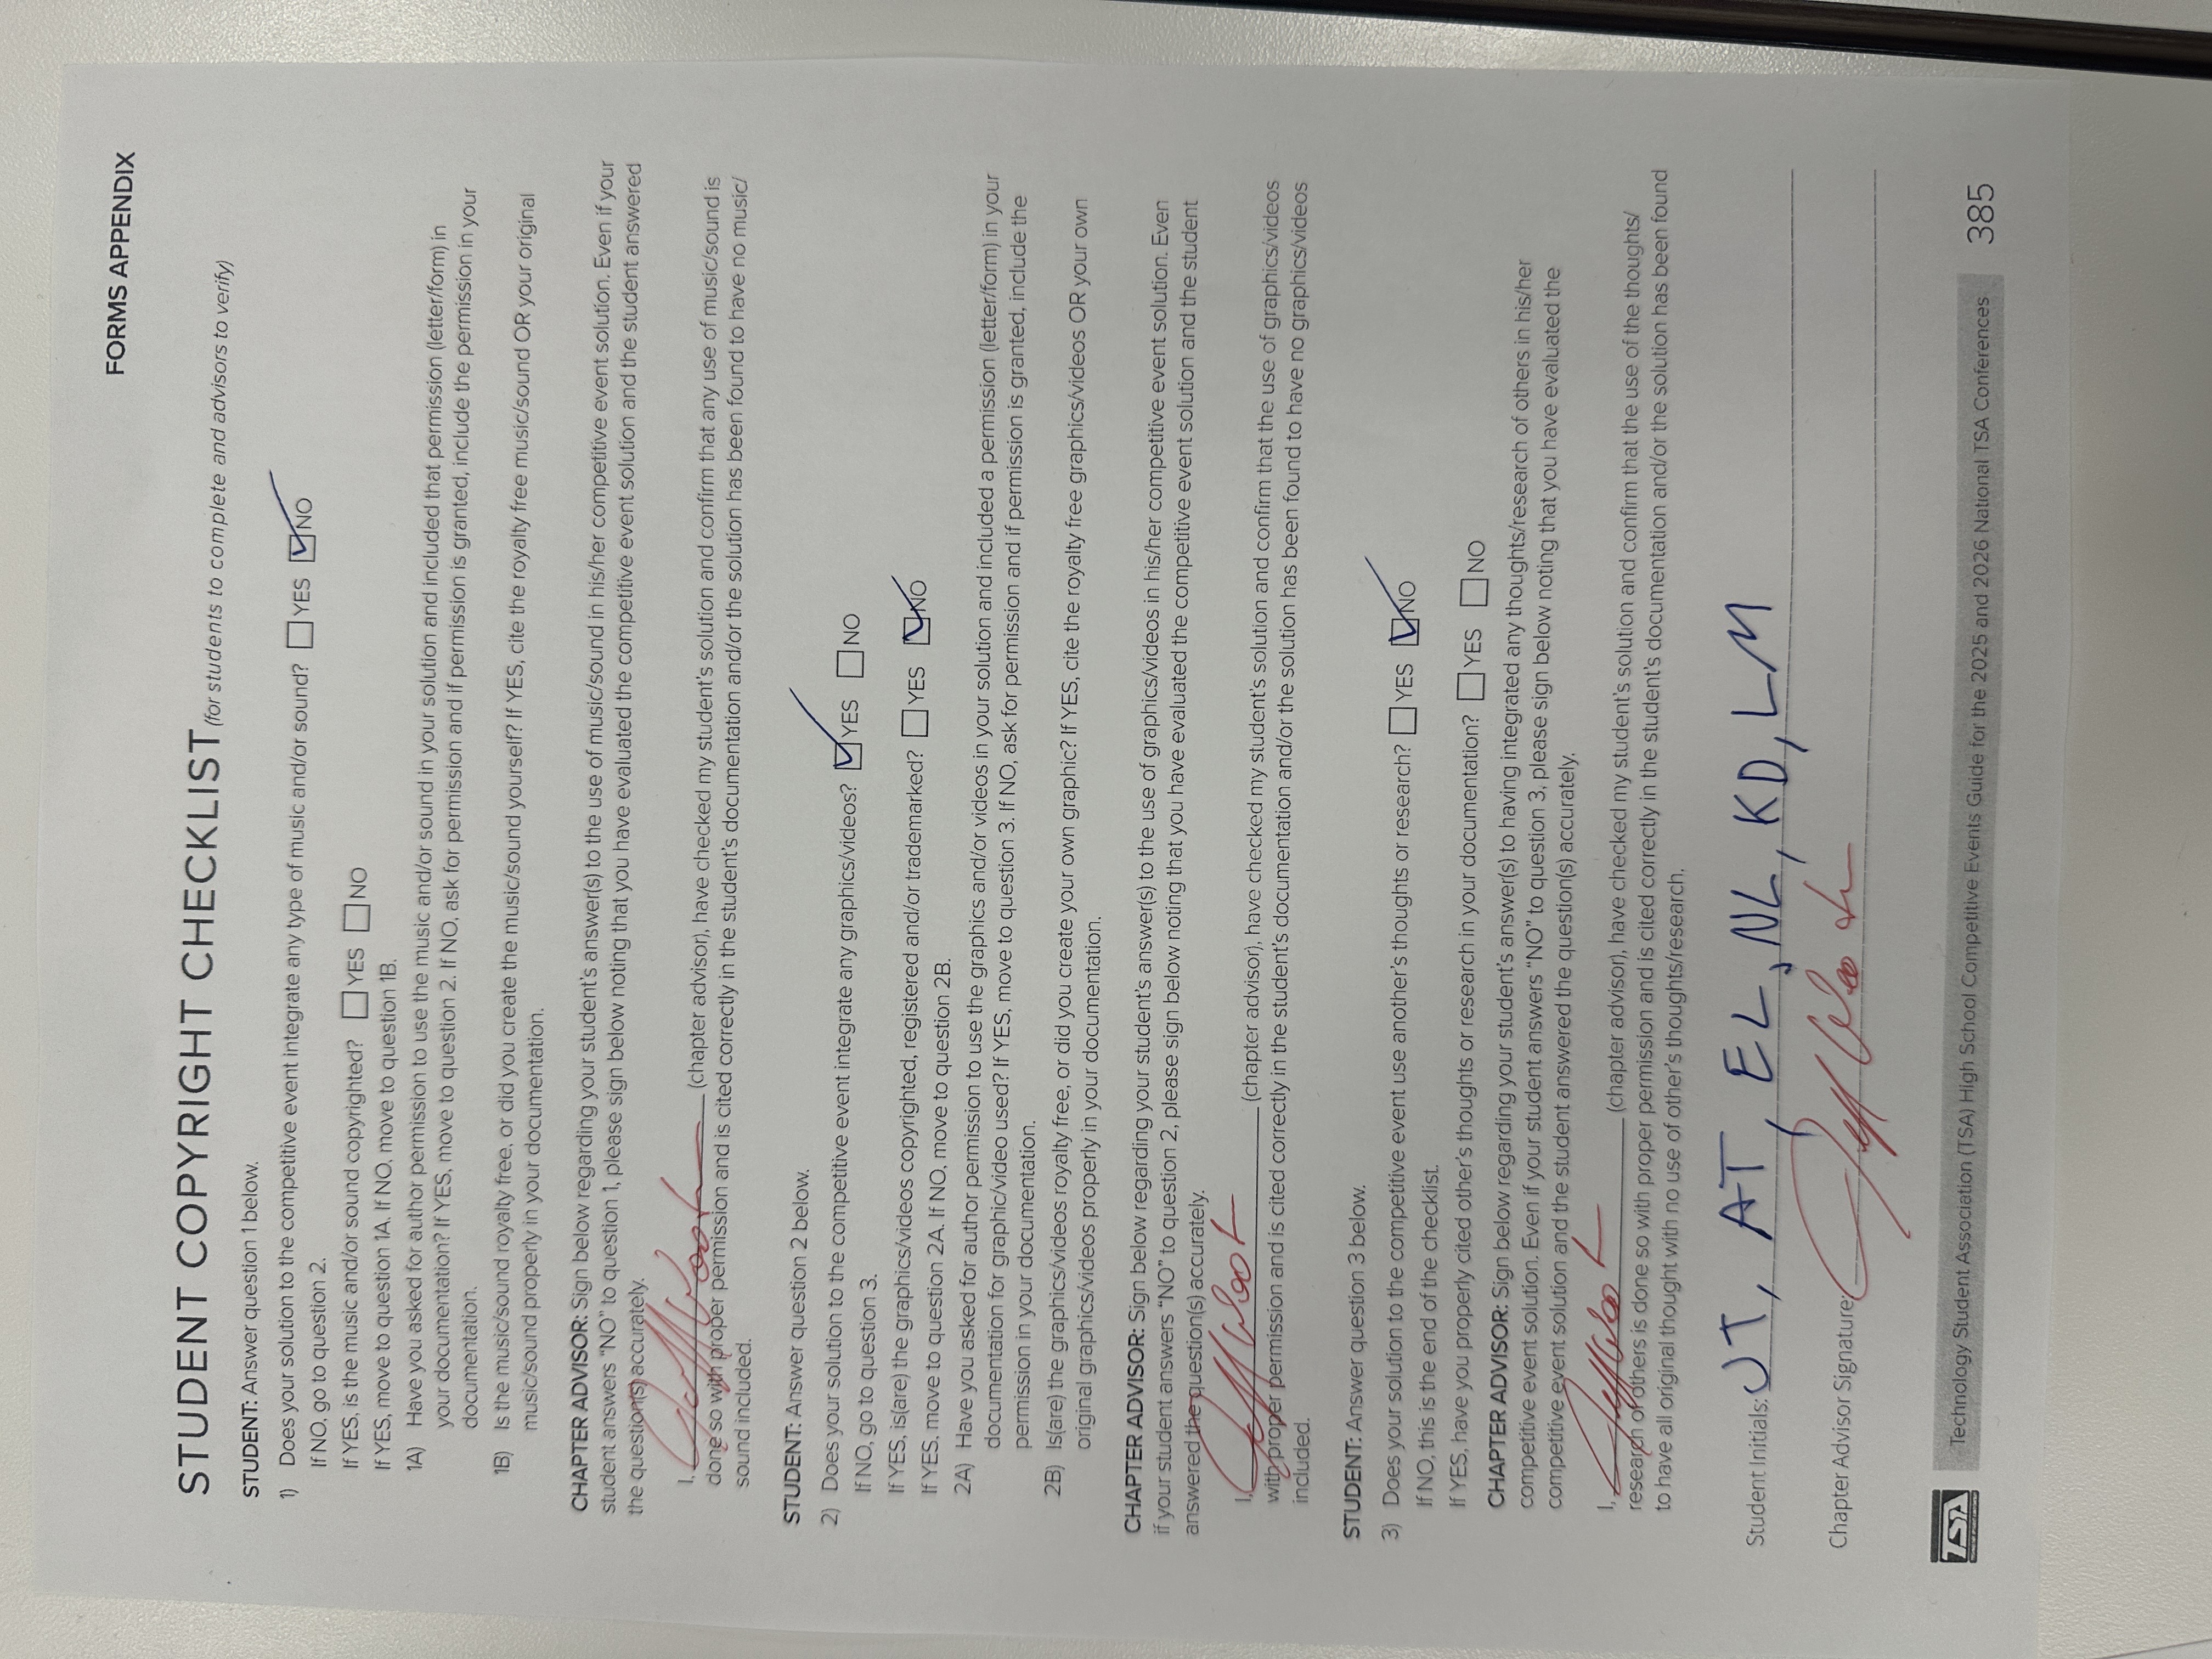 FORMS APPENDIX
STUDENT COPYRIGHT CHECKLIST (for students to complete and advisors to verify)
STUDENT: Answer question 1 below.
1) Does your solution to the competitive event integrate any type of music and/or sound? YES NO
If NO, go to question 2.
If YES, is the music and/or sound copyrighted? YES NO
If YES, move to question 1A. If NO, move to question 1B.
1A) Have you asked for author permission to use the music and/or sound in your solution and included that permission (letter/form) in
your documentation? If YES, move to question 2. If NO, ask for permission and if permission is granted, include the permission in your
documentation.
1B) Is the music/sound royalty free, or did you create the music/sound yourself? If YES, cite the royalty free music/sound OR your original
music/sound properly in your documentation.
CHAPTER ADVISOR: Sign below regarding your student's answer(s) to the use of music/sound in his/her competitive event solution. Even if your
student answers "NO" to question 1, please sign below noting that you have evaluated the competitive event solution and the student answered
the question(s) accurately.
I, Jeff (chapter advisor), have checked my student's solution and confirm that any use of music/sound is
done so with proper permission and is cited correctly in the student's documentation and/or the solution has been found to have no music/
sound included.
STUDENT: Answer question 2 below.
2) Does your solution to the competitive event integrate any graphics/videos? YES NO
If NO, go to question 3.
If YES, is(are) the graphics/videos copyrighted, registered and/or trademarked? YES NO
If YES, move to question 2A. If NO, move to question 2B.
2A) Have you asked for author permission to use the graphics and/or videos in your solution and included a permission (letter/form) in your
documentation for graphic/video used? If YES, move to question 3. If NO, ask for permission and if permission is granted, include the
permission in your documentation.
2B) Is(are) the graphics/videos royalty free, or did you create your own graphic? If YES, cite the royalty free graphics/videos OR your own
original graphics/videos properly in your documentation.
CHAPTER ADVISOR: Sign below regarding your student's answer(s) to the use of graphics/videos in his/her competitive event solution. Even
if your student answers "NO" to question 2, please sign below noting that you have evaluated the competitive event solution and the student
answered the question(s) accurately.
I, Jeff (chapter advisor), have checked my student's solution and confirm that the use of graphics/videos
with proper permission and is cited correctly in the student's documentation and/or the solution has been found to have no graphics/videos
included.
STUDENT: Answer question 3 below.
3) Does your solution to the competitive event use another's thoughts or research? YES NO
If NO, this is the end of the checklist.
If YES, have you properly cited other's thoughts or research in your documentation? YES NO
CHAPTER ADVISOR: Sign below regarding your student's answer(s) to having integrated any thoughts/research of others in his/her
competitive event solution. Even if your student answers "NO" to question 3, please sign below noting that you have evaluated the
competitive event solution and the student answered the question(s) accurately.
I, Jeff (chapter advisor), have checked my student's solution and confirm that the use of the thoughts/
research of others is done so with proper permission and is cited correctly in the student's documentation and/or the solution has been found
to have all original thought with no use of other's thoughts/research.
Student Initials: JT, AT, EL, NL, KD, LM
Chapter Advisor Signature: Jeff
TSA Technology Student Association (TSA) High School Competitive Events Guide for the 2025 and 2026 National TSA Conferences 385